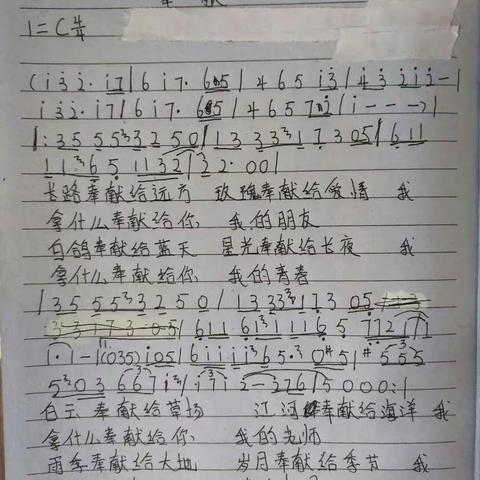 1=C 4/4
(i 3 2· i7|6 i 7· 6 5|4 6 5 i3|4 3 2 i i 2 -|
i 3 2· i7|6 i 7· 6 5|4 6 5 7 i|i - - -)|
|:35 55 3 32 50|13 33 1 7 3 05|6 11
11 3 6 5 1132|2 2· 00|
长路奉献给远方 玫瑰奉献给爱情 我
拿什么奉献给你, 我的朋友
白鸽奉献给蓝天 星光奉献给长夜 我
拿什么奉献给你, 我的青春
|35 55 3 32 5 0|13 33 3 1 7 3 05
|611 61 3 111 6 5 77 2 171
1·1-|(035) i05|6 i i i i 3 6 5·3 0#4 5|#5 5 5
5 3 03 6 6 7 i 3|i 7 i 2-32 6 1 5 0 0 0:|
白云奉献给草场 江河奉献给海洋 我
拿什么奉献给你, 我的老师
雨季奉献给大地 岁月奉献给季节 我